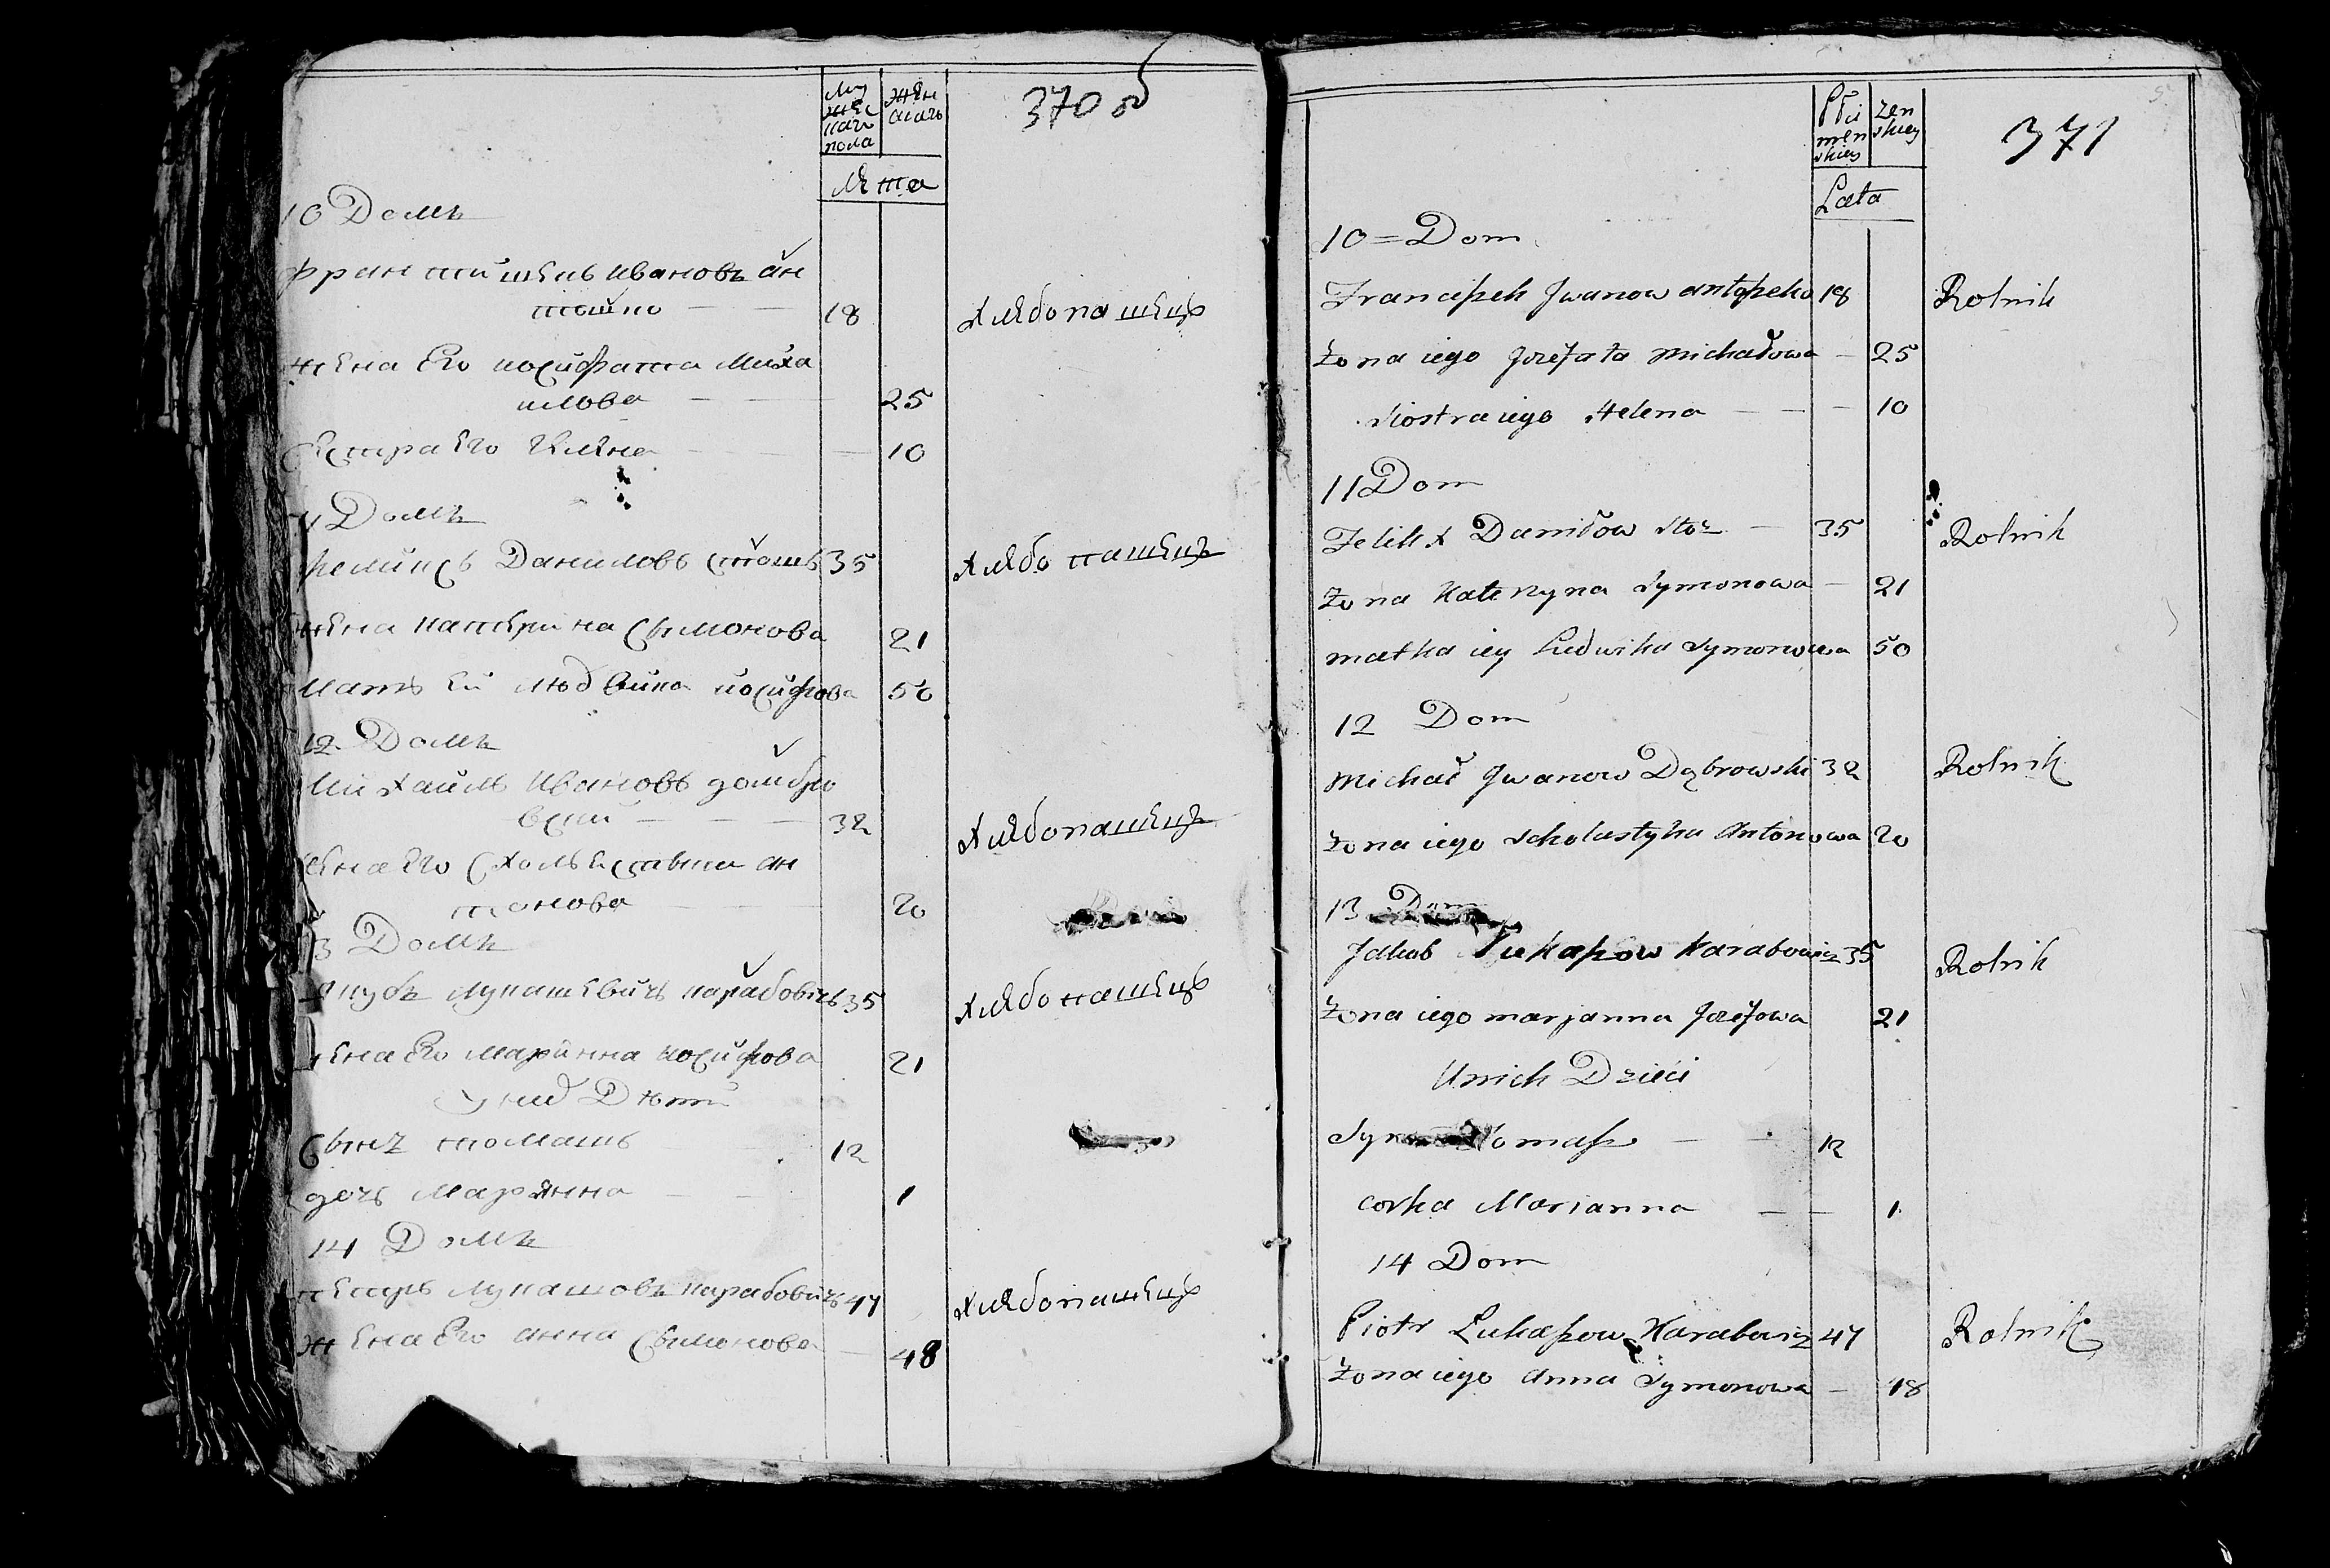 Му
жес
каго
пола
Жен
скаго
370 об
Лѣта
10 Домъ
Францишекъ Ивановъ Ан
тошко 18 Хлѣбопашецъ
жена Его Иосифата Миха
илова 25
Сестра Его Гелена 10
11 Домъ
феликсъ Даниловъ Стошъ 35 Хлѣбопашецъ
жена Катерина Сымонова 21
Мать ей Людвика Иосифова 50
12 Домъ
Михаилъ Ивановъ домбро
вский 32 Хлѣбопашецъ
жена Его Схолястыка Ан
тонова 20
13 Домъ
Якубъ Лукашевичъ Карабовичъ 35 Хлѣбопашецъ
жена Его Марянна Иосифова 21
у них Дѣти
Сынъ томашъ 12
дочь Марянна 1
14 Домъ
петръ Лукашовъ Карабовичъ 47 Хлѣбопашецъ
жена Его анна Сымонова 48
Płci
męn
skiey
żen
skiey
371
Lata
10 = Dom
Franciszek Jwanow antoszko 18 Rolnik
żona iego Jozefata Michałowa 25
Siostra iego Helena 10
11 Dom
Felikx Daniłow Stoz 35 Rolnik
żona Katerzyna Symonowa 21
matka iey Ludwika Symonowa 50
12 Dom
Michał Jwanow Dąbrowski 32 Rolnik
żona iego Scholastyka Antonowa 20
13 Dom
Jakob Łukaszow Karabowicz 35 Rolnik
żona iego marjanna Jozefowa 21
U nich Dzieci
Syn Tomasz 12
corka Marianna 1
14 Dom
Piotr Łukaszow Karabowicz 47 Rolnik
żona iego Anna Symonowa 48